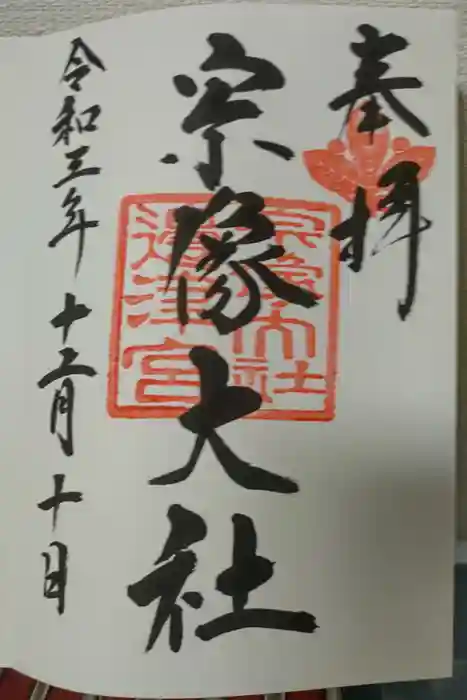 奉拝
宗像大社
宗像大社
邉津宮
令和三年 十二月 十日